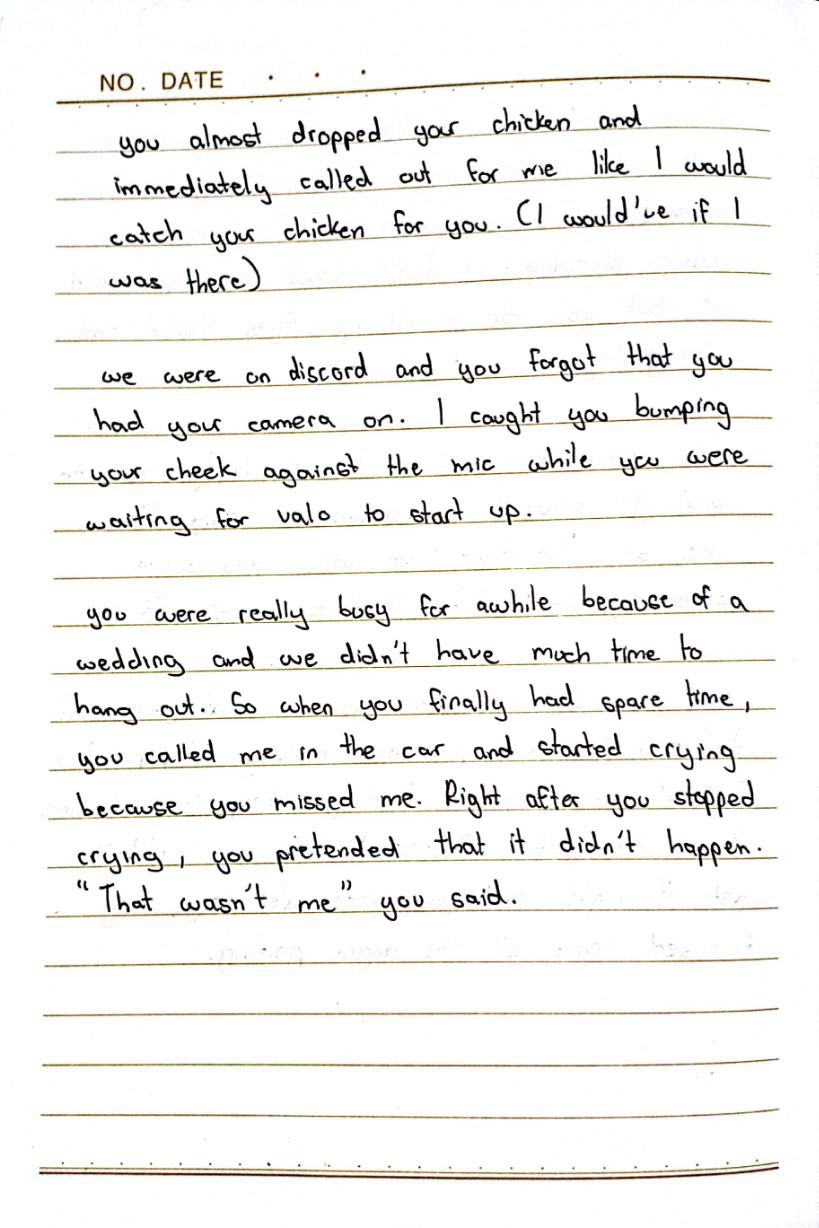 NO. DATE . . .
you almost dropped your chicken and
immediately called out for me like I would
catch your chicken for you. (I would've if I
was there)
we were on discord and you forgot that you
had your camera on. I caught you bumping
your cheek against the mic while you were
waiting for valo to start up.
you were really busy for awhile because of a
wedding and we didn't have much time to
hang out.. So when you finally had spare time,
you called me in the car and started crying
because you missed me. Right after you stopped
crying, you pretended that it didn't happen.
"That wasn't me" you said.